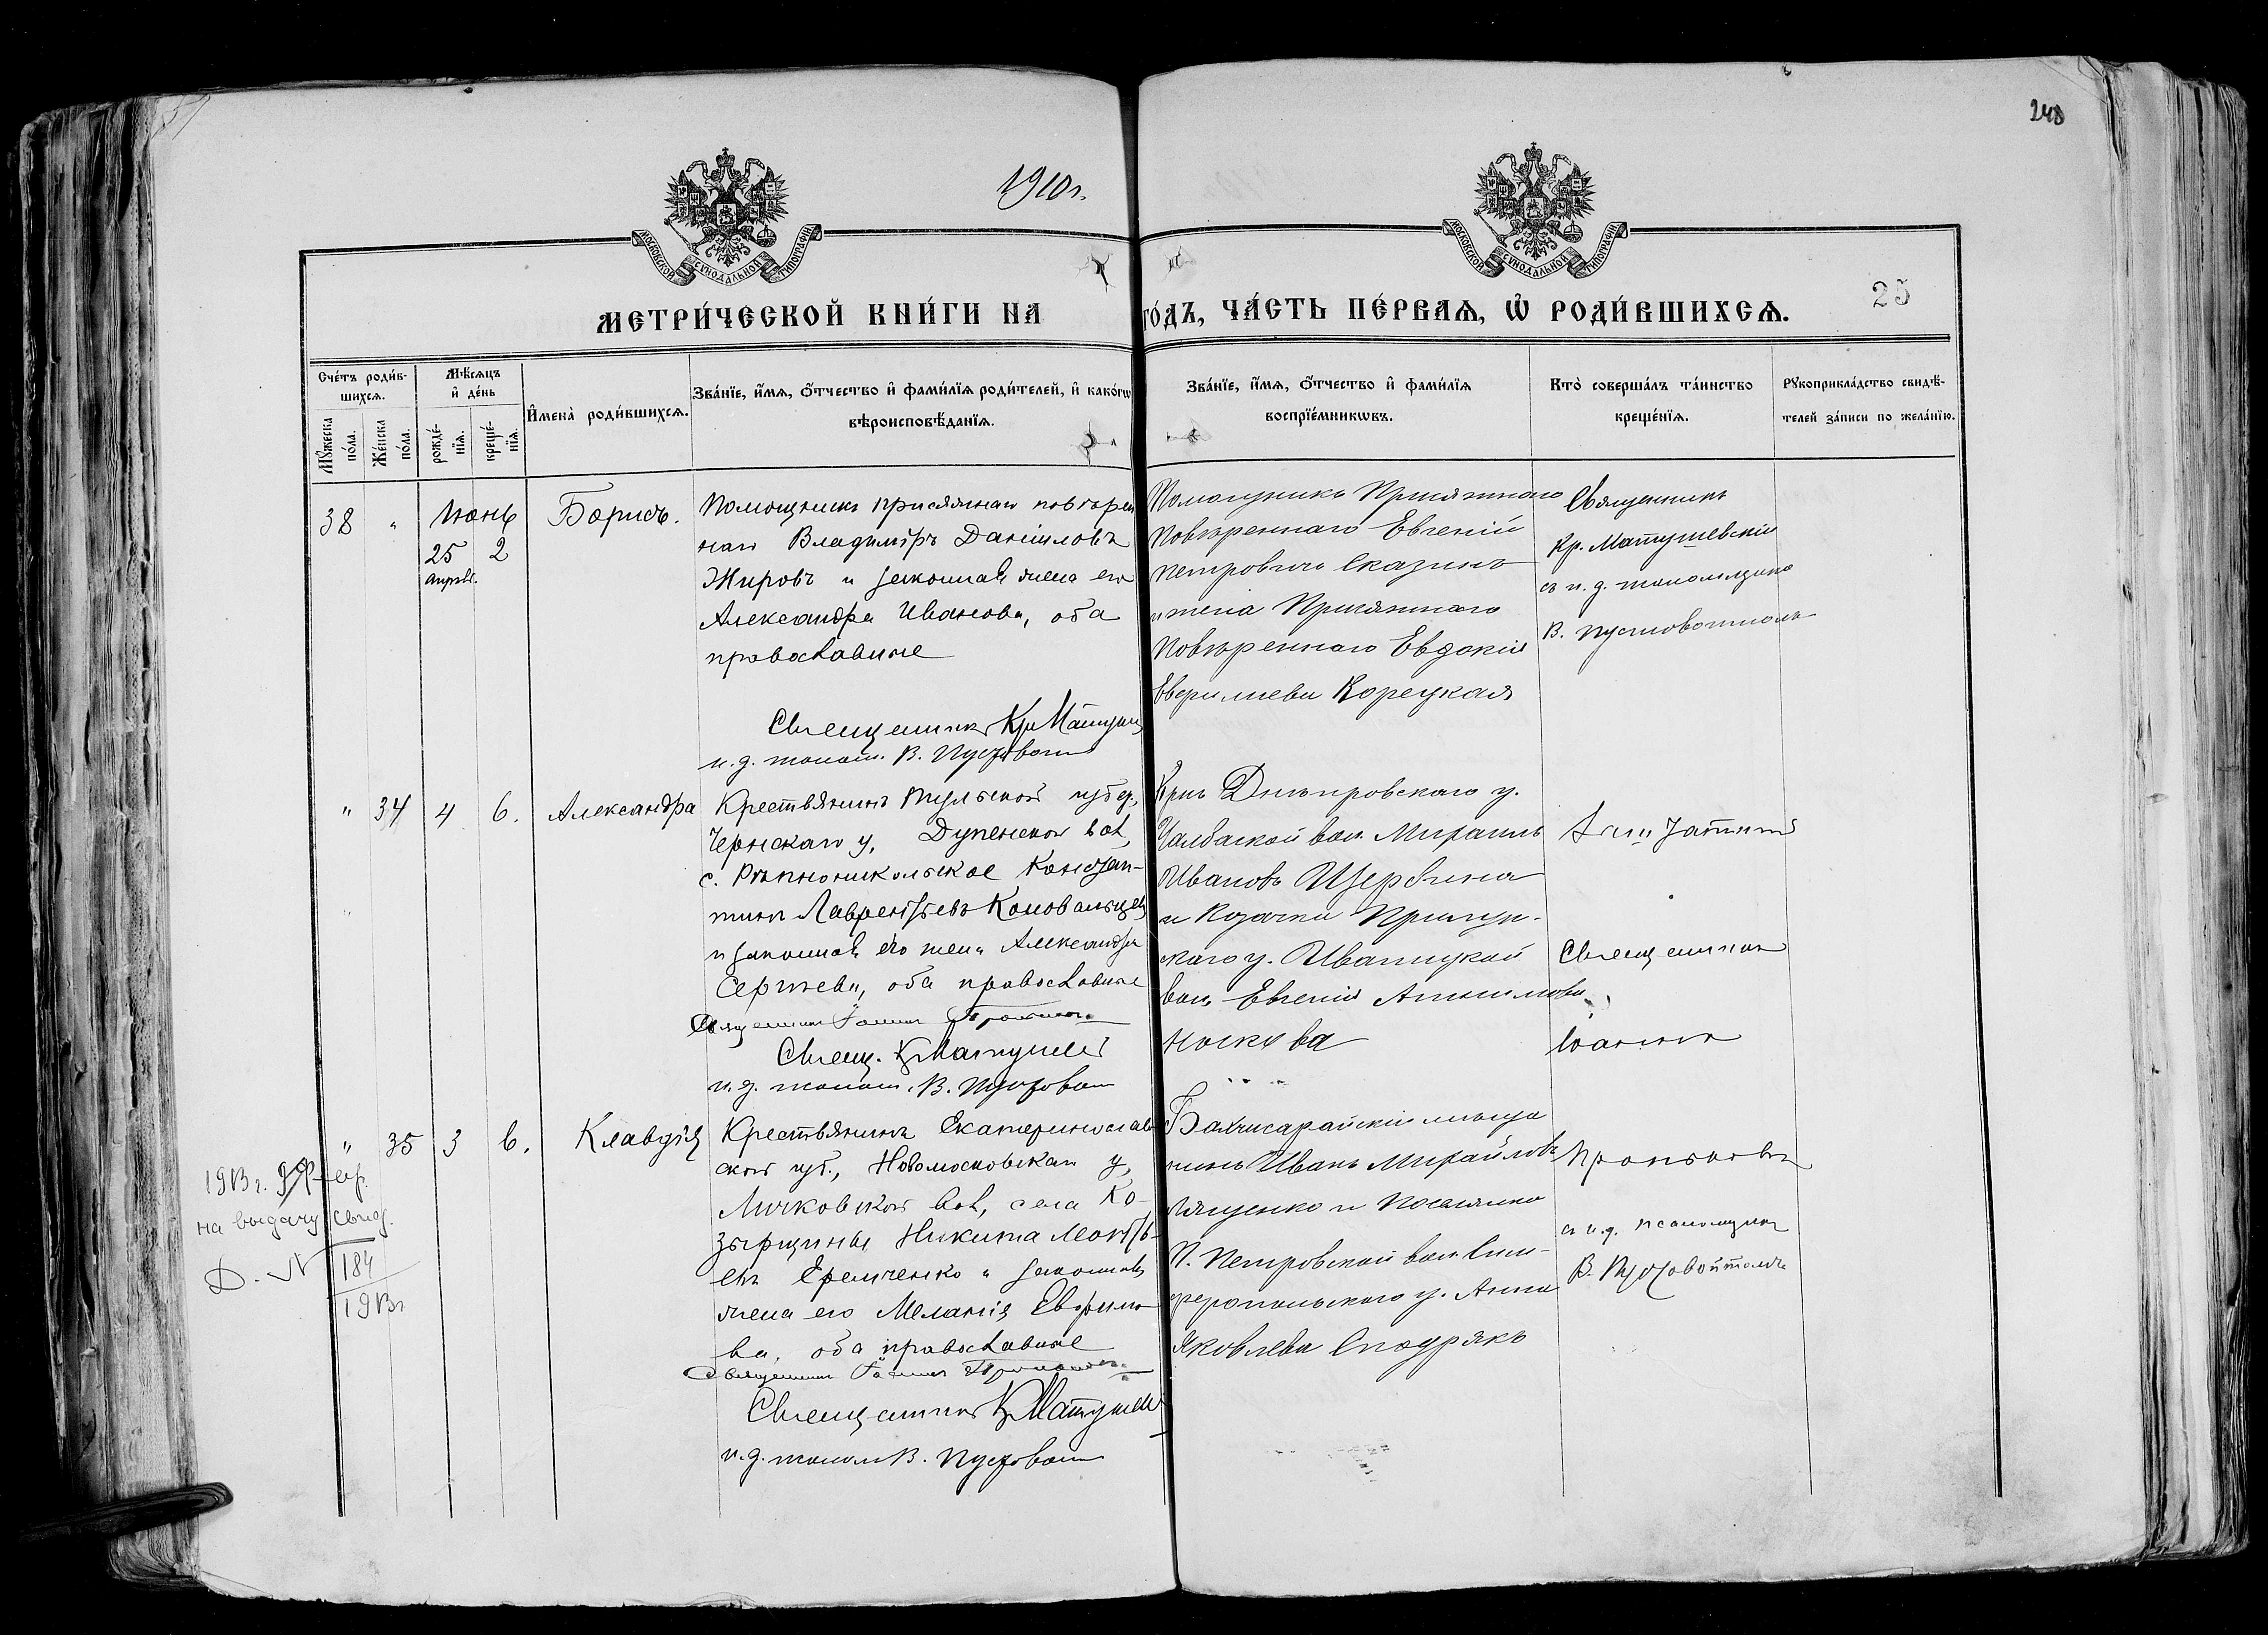 248
1910 г.
МОСКОВСКОЙ СѴНОДАЛЬНОЙ ТИПОГРАФІИ
МОСКОВСКОЙ СѴНОДАЛЬНОЙ ТИПОГРАФІИ
МЕТРИ́ЧЕСКОЙ КНИ́ГИ НА ГО́ДЪ, ЧА́СТЬ ПЕ́РВАѦ, Ѡ҆ РОДИ́ВШИХСѦ.
25
Сче́тъ роди́в-
шихсѧ.
Мꙋ́жеска по́ла.
Же́нска по́ла.
Мѣ́сѧцъ
и҆ де́нь
рожде́-нїѧ.
креще́-нїѧ.
И҆мена̀ роди́вшихсѧ.
Зва́нїе, и҆́мѧ, ѻ҆́тчество и҆ фами́лїѧ роди́телей, и҆ како́гѡ
вѣроисповѣ́данїѧ.
Зва́нїе, и҆́мѧ, ѻ҆́тчество и҆ фами́лїѧ
воспрїе́мникѡвъ.
Кто̀ соверша́лъ та́инство
креще́нїѧ.
Рꙋкоприкла́дство свидѣ́-
телей за́писи по жела́нїю.
38 "
Июнь
25 2
апрѣл.
Борисъ.
Помощникъ присяжнаго повѣрен
наго Владиміръ Даніиловъ
Жировъ и законная жена его
Александра Иванова, оба
православные
Священникъ Кр Матуш
и. д. псалом. В. Пустовойт
Помощникъ Присяжнаго
Повѣреннаго Евгеній
Петровичъ Сказинъ
и жена Присяжнаго
Повѣреннаго Евдокія
Корецкая
Священникъ
Кр. Матушевскій
съ и. д. псаломщика
В. Пустовойтомъ
" 34 4 6.
Александра
Крестьянинъ Тульской губер.,
Чернскаго у, Дупенской вол,
с. Рѣпноникольское Констан-
тинъ Лаврентьевъ Коновальцевъ
и законная его жена Александра
Сергѣева, оба православные
Священникъ Іоаннъ
Свящ. К Матушев
и. д. псалом. В. Пустовойт
Крнъ Днѣпровскаго у.
Чалбаской вол. Михаилъ
Ивановъ Щербина
и Козачка Прилук-
каго у. Иваницкой
вол. Евгенія
Носкова
Священникъ
Іоаннъ
" 35 3 6.
Клавдія
Крестьянинъ Екатеринослав
ской губ., Новомосковскаго у,
Личковской вол, села Ко-
зырщины Никита Леонтье-
евъ Еремченко и законная
жена его Меланія Евфимо-
ва, оба православные
Священникъ Іоаннъ
Священникъ К Матушев
и. д. псалом В. Пустовойт
Бахчисарайскій мѣща
нинъ Иванъ Михайловъ
Лященко и Поселянка
П. Петровской вол. Сим-
феропольскаго у. Анна
Яковлева Сподрякъ
съ и. д. псаломщика
В. Пустовойтомъ
1913 г.
на выдачу свид.
Д. N 184
1913 г